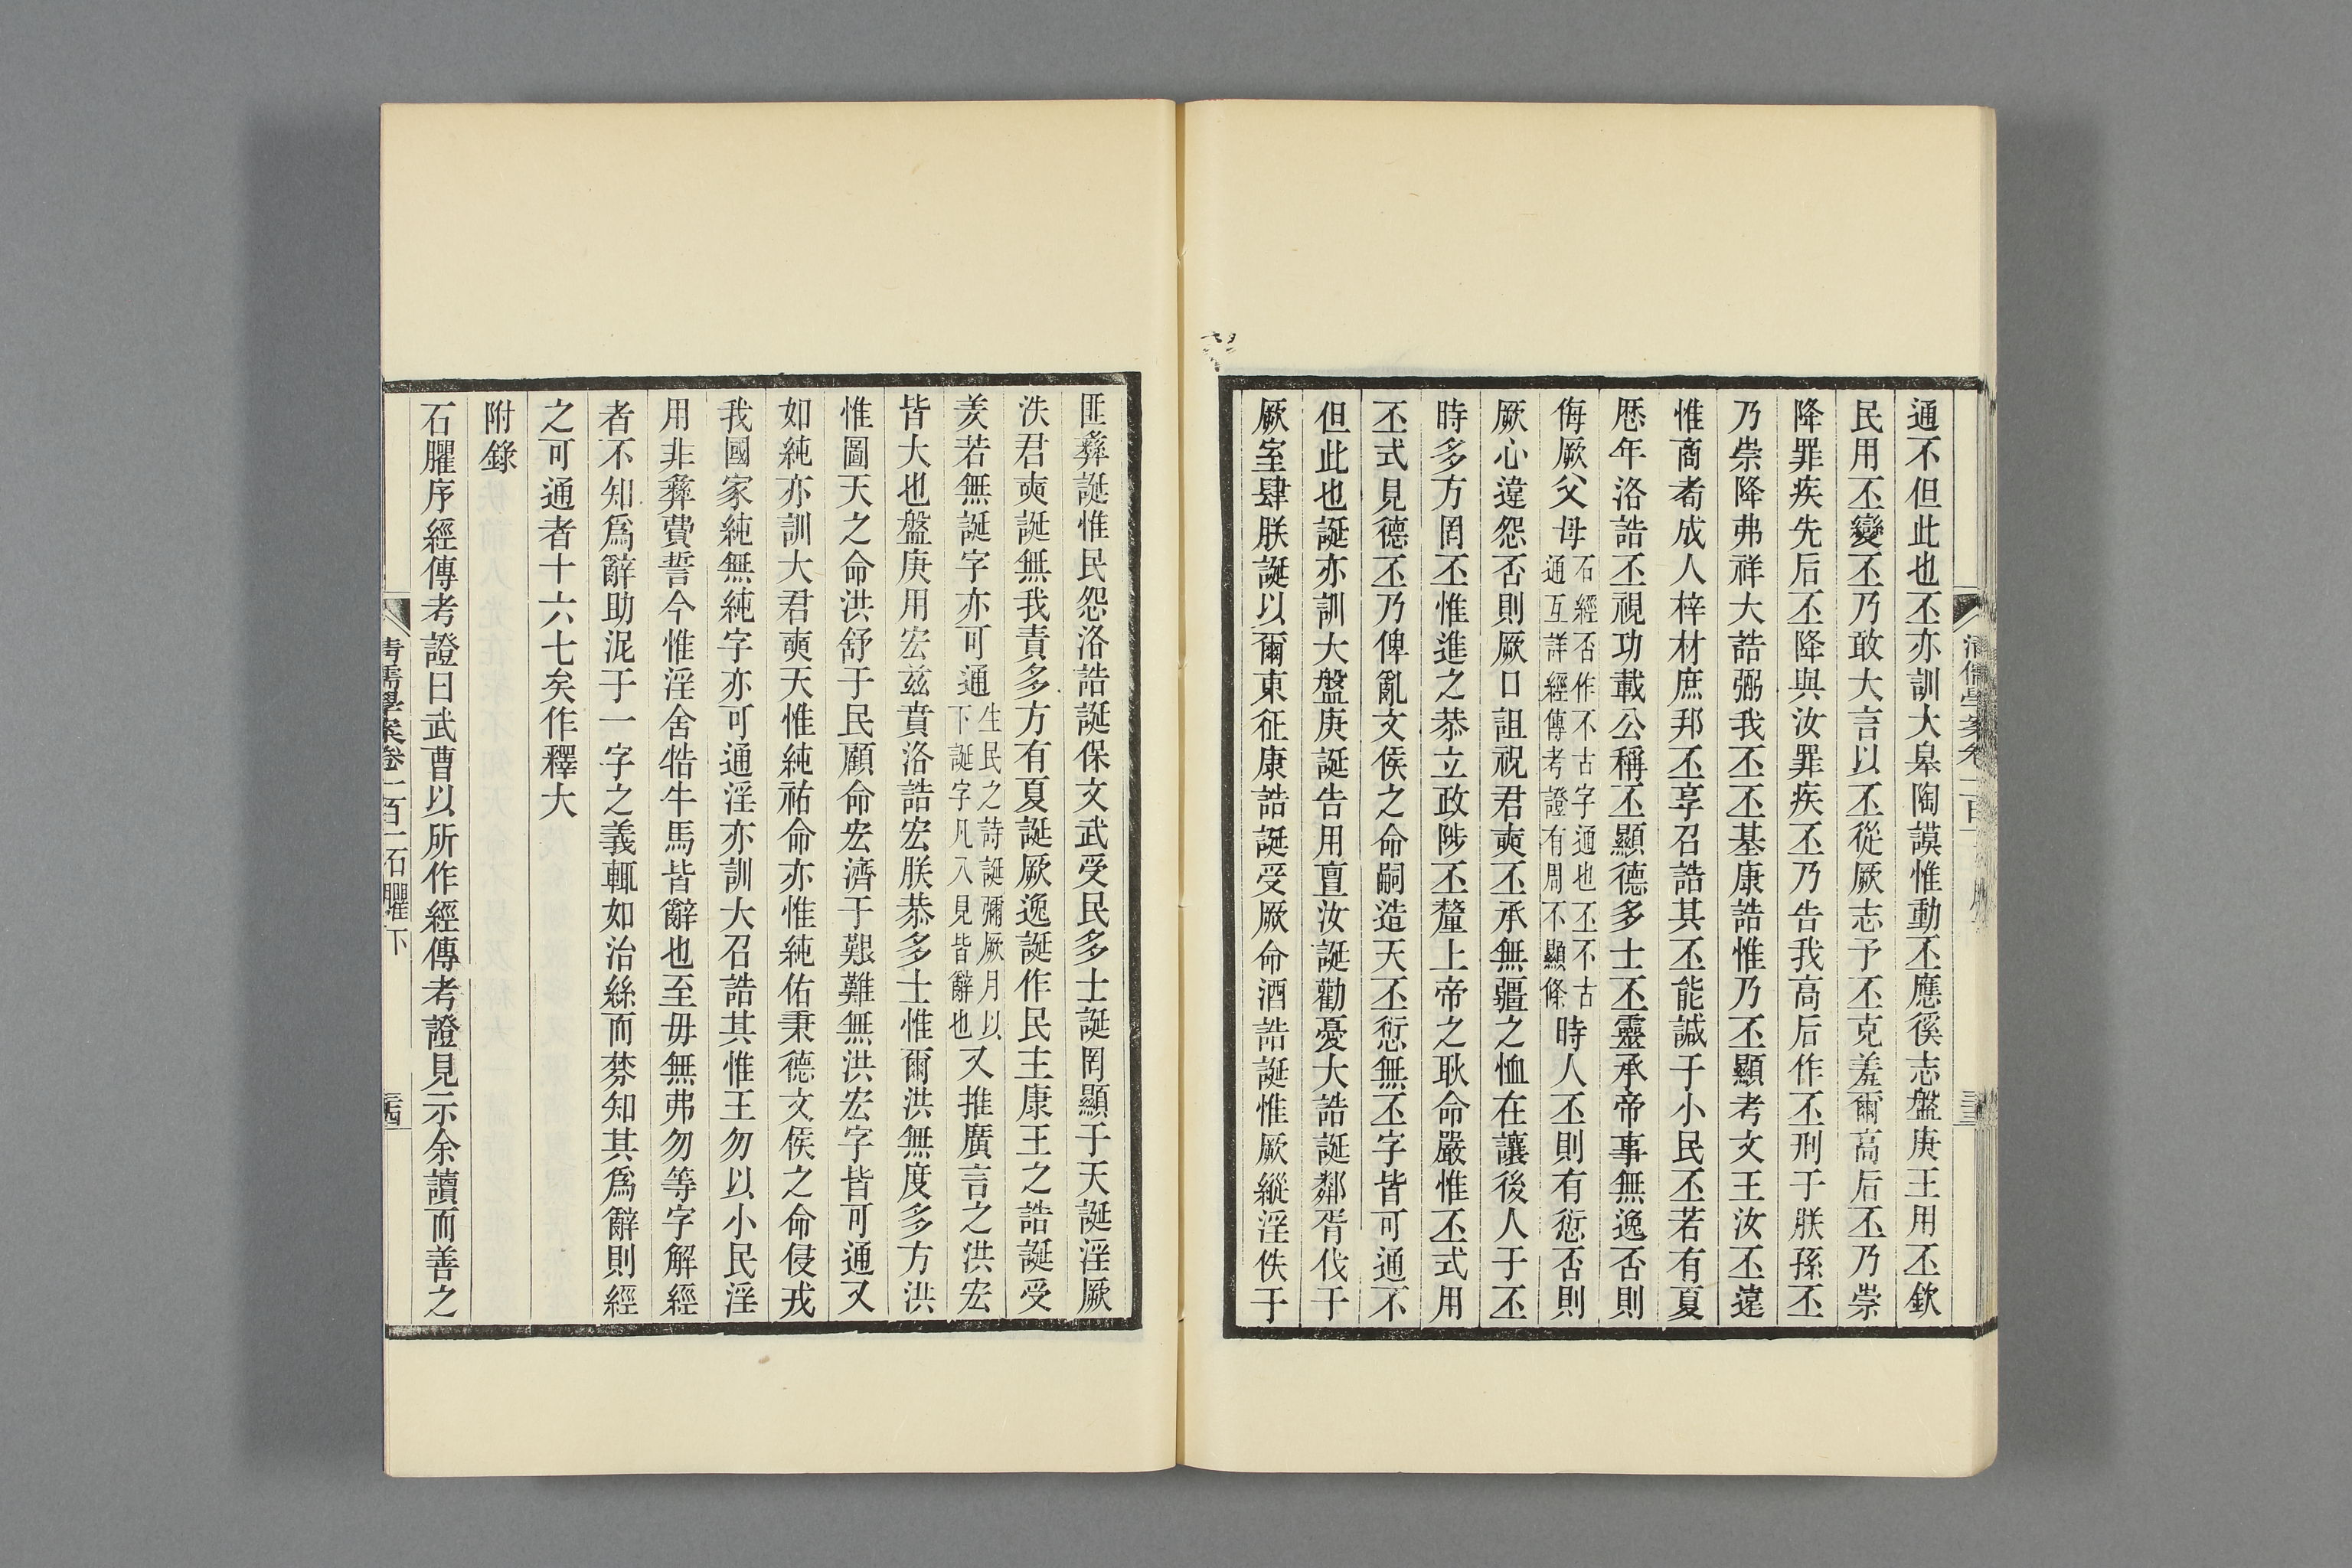 通不但此也丕亦訓大皋陶謨惟動丕應徯志盤庚王用丕欽
民用丕變丕乃敢大言以丕從厥志予丕克羞爾高后丕乃崇
降罪疾先后丕降與汝罪疾丕乃告我高后作丕刑于朕孫丕
乃崇降弗祥大誥弼我丕丕基康誥惟乃丕顯考文王汝丕遠
惟商耇成人梓材庶邦丕享召誥其丕能諴于小民丕若有夏
歷年洛誥丕視功載公稱丕顯德多士丕靈承帝事無逸否則
侮厥父母石經否作不古字通也丕不古通互詳經傳考證有周不顯條時人丕則有愆否則
厥心違怨否則厥口詛祝君奭丕承無疆之恤在讓後人于丕
時多方罔丕惟進之恭立政陟丕釐上帝之耿命嚴惟丕式用
丕式見德丕乃俾亂文侯之命嗣造天丕愆無丕字皆可通不
但此也誕亦訓大盤庚誕告用亶汝誕勸憂大誥誕鄰胥伐于
厥室肆朕誕以爾東征康誥誕受厥命酒誥誕惟厥縱淫佚于
匪彝誕惟民怨洛誥誕保文武受民多士誕罔顯于天誕淫厥
泆君奭誕無我責多方有夏誕厥逸誕作民主康王之誥誕受
羑若無誕字亦可通生民之詩誕彌厥月以下誕字凡八見皆辭也又推廣言之洪宏
皆大也盤庚用宏茲賁洛誥宏朕恭多士惟爾洪無度多方洪
惟圖天之命洪舒于民顧命宏濟于艱難無洪宏字皆可通又
如純亦訓大君奭天惟純祐命亦惟純佑秉德文侯之命侵戎
我國家純無純字亦可通淫亦訓大召誥其惟王勿以小民淫
用非彝費誓今惟淫舍牿牛馬皆辭也至毋無弗勿等字解經
者不知為辭助泥于一字之義輒如治絲而棼知其為辭則經
之可通者十六七矣作釋大
附錄
石臞序經傳考證曰武曹以所作經傳考證見示余讀而善之
清儒學案卷一百一石臞下
三四